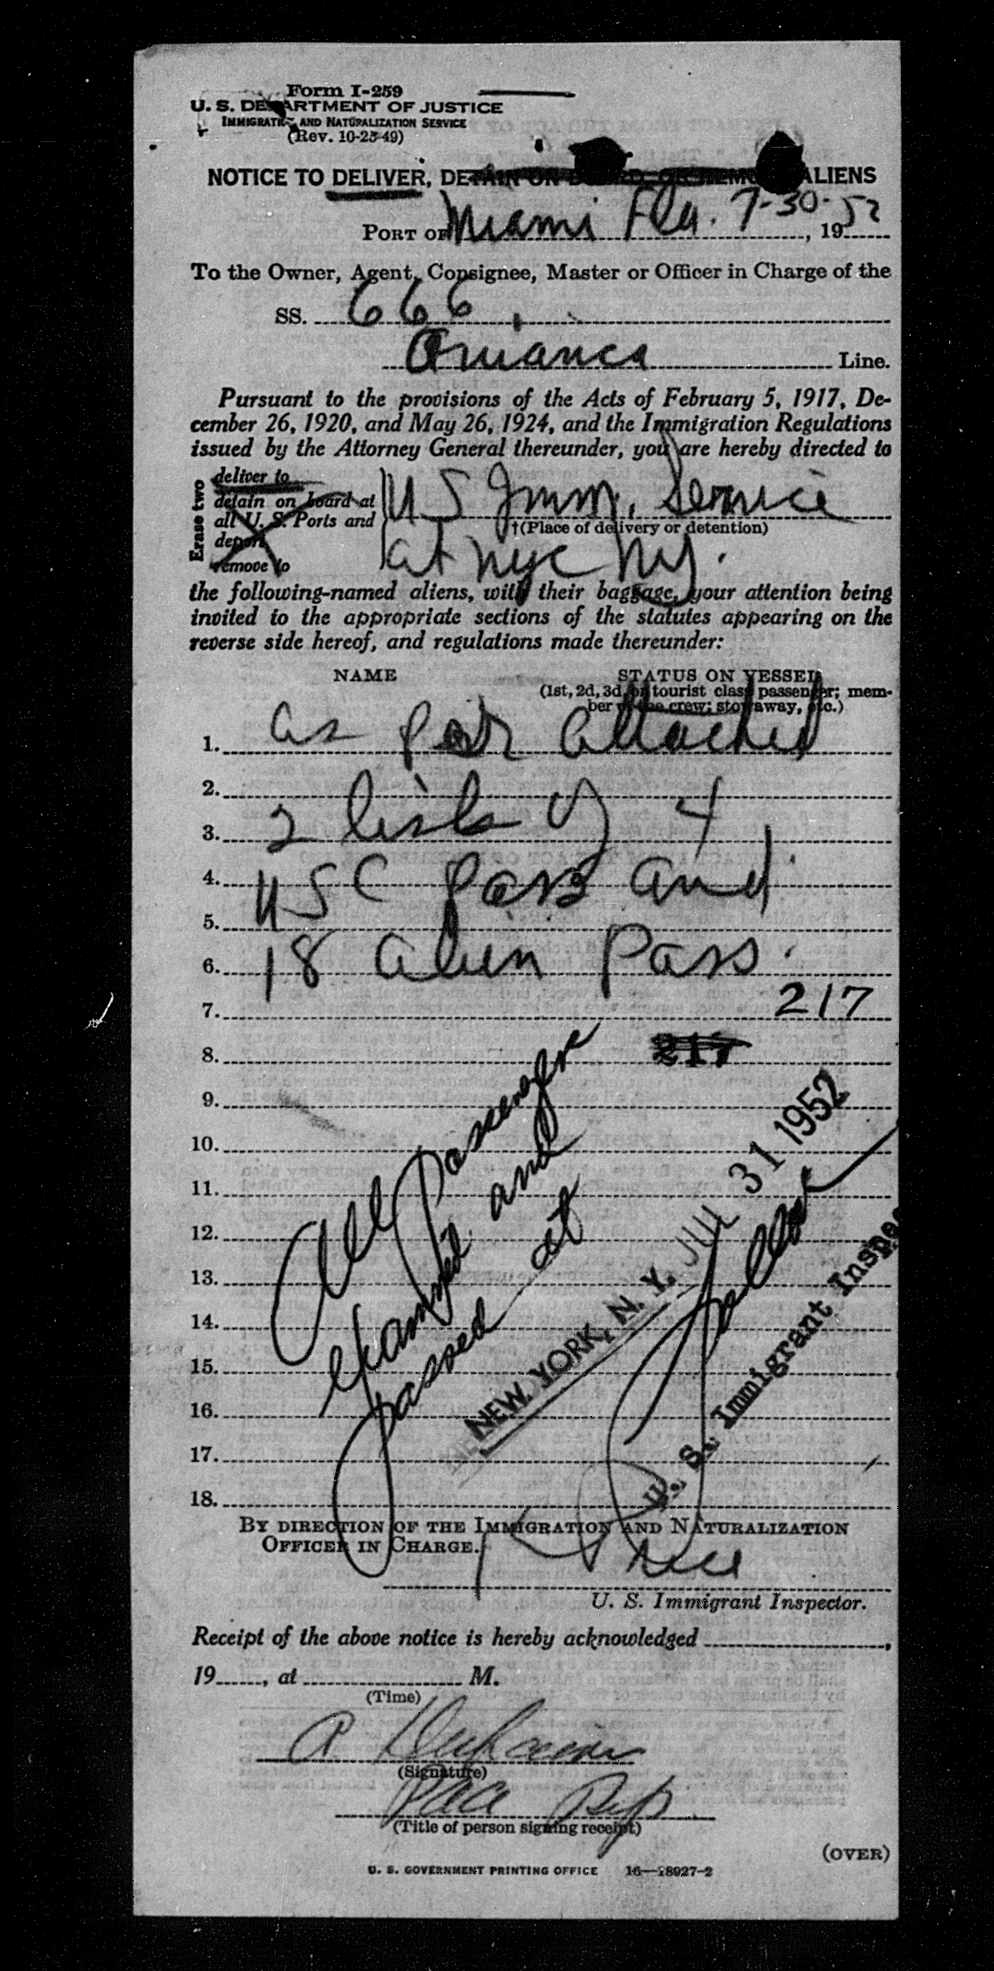 Form I-259
U. S. DEPARTMENT OF JUSTICE
IMMIGRATION AND NATURALIZATION SERVICE
(Rev. 10-25-49)
NOTICE TO DELIVER, DETAIN ON BOARD, OR REMOVE ALIENS
PORT OF Miami Fla. 7-30-, 1952
To the Owner, Agent, Consignee, Master or Officer in Charge of the
SS. 666
Avianca Line.
Pursuant to the provisions of the Acts of February 5, 1917, De-
cember 26, 1920, and May 26, 1924, and the Immigration Regulations
issued by the Attorney General thereunder, you are hereby directed to
Erase two
deliver to
detain on board at
all U. S. Ports and
deport
remove to
US Imm. Service
†(Place of delivery or detention)
at nyc Ny.
the following-named aliens, with their baggage, your attention being
invited to the appropriate sections of the statutes appearing on the
reverse side hereof, and regulations made thereunder:
NAME STATUS ON VESSEL
(1st, 2d, 3d, or tourist class passenger; mem-
ber of the crew; stowaway, etc.)
1. as per attached
2.
3. 2 lists of 4
4. USC Pass and
5.
6. 18 alien Pass.
7. 217
8. 217
9.
10.
11.
12.
13.
14.
15.
16.
17.
18.
All Passengers
Examined and
passed at
NEW YORK, N. Y. JUL 31 1952
U. S. Immigrant Inspe
BY DIRECTION OF THE IMMIGRATION AND NATURALIZATION
OFFICER IN CHARGE.
U. S. Immigrant Inspector.
Receipt of the above notice is hereby acknowledged ,
19 , at M.
(Time)
(Signature)
(Title of person signing receipt)
(OVER)
U. S. GOVERNMENT PRINTING OFFICE 16—28927-2